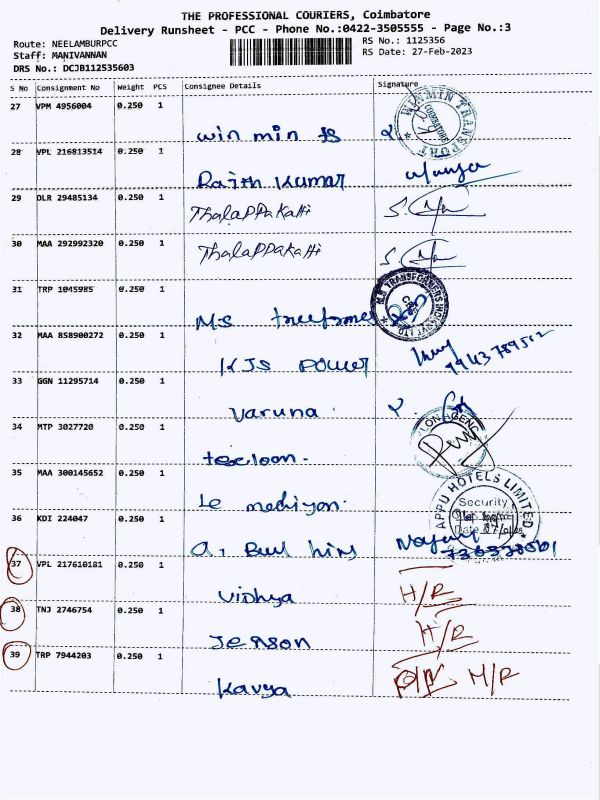 THE PROFESSIONAL COURIERS, Coimbatore
Delivery Runsheet - PCC - Phone No.:0422-3505555 - Page No.:3
Route: NEELAMBURPCC
RS No.: 1125356
Staff: MANIVANNAN
RS Date: 27-Feb-2023
DRS No.: DCJB112535603
S No Consignment No Weight PCS Consignee Details Signature
27 VPM 4956004 0.250 1
WINMIN TRANSPORT
COIMBATORE
win min ts
28 VPL 216813514 0.250 1
Rajth Kumar
29 DLR 29485134 0.250 1
Thalappakatti
30 MAA 292992320 0.250 1
Thalappakatti
31 TRP 1045985 0.250 1
M.S TRANSFORMERS
M.S
32 MAA 858900272 0.250 1
KJS Power
33 GGN 11295714 0.250 1
Varuna
34 MTP 3027720 0.250 1
tecloon.
35 MAA 300145652 0.250 1
Le mediyon.
APPU HOTELS LIMITED
Security
Date
36 KDI 224047 0.250 1
37 VPL 217610181 0.250 1
Vidhya H/R
38 TNJ 2746754 0.250 1
Jenson H/R
39 TRP 7944203 0.250 1
Kavya H/R